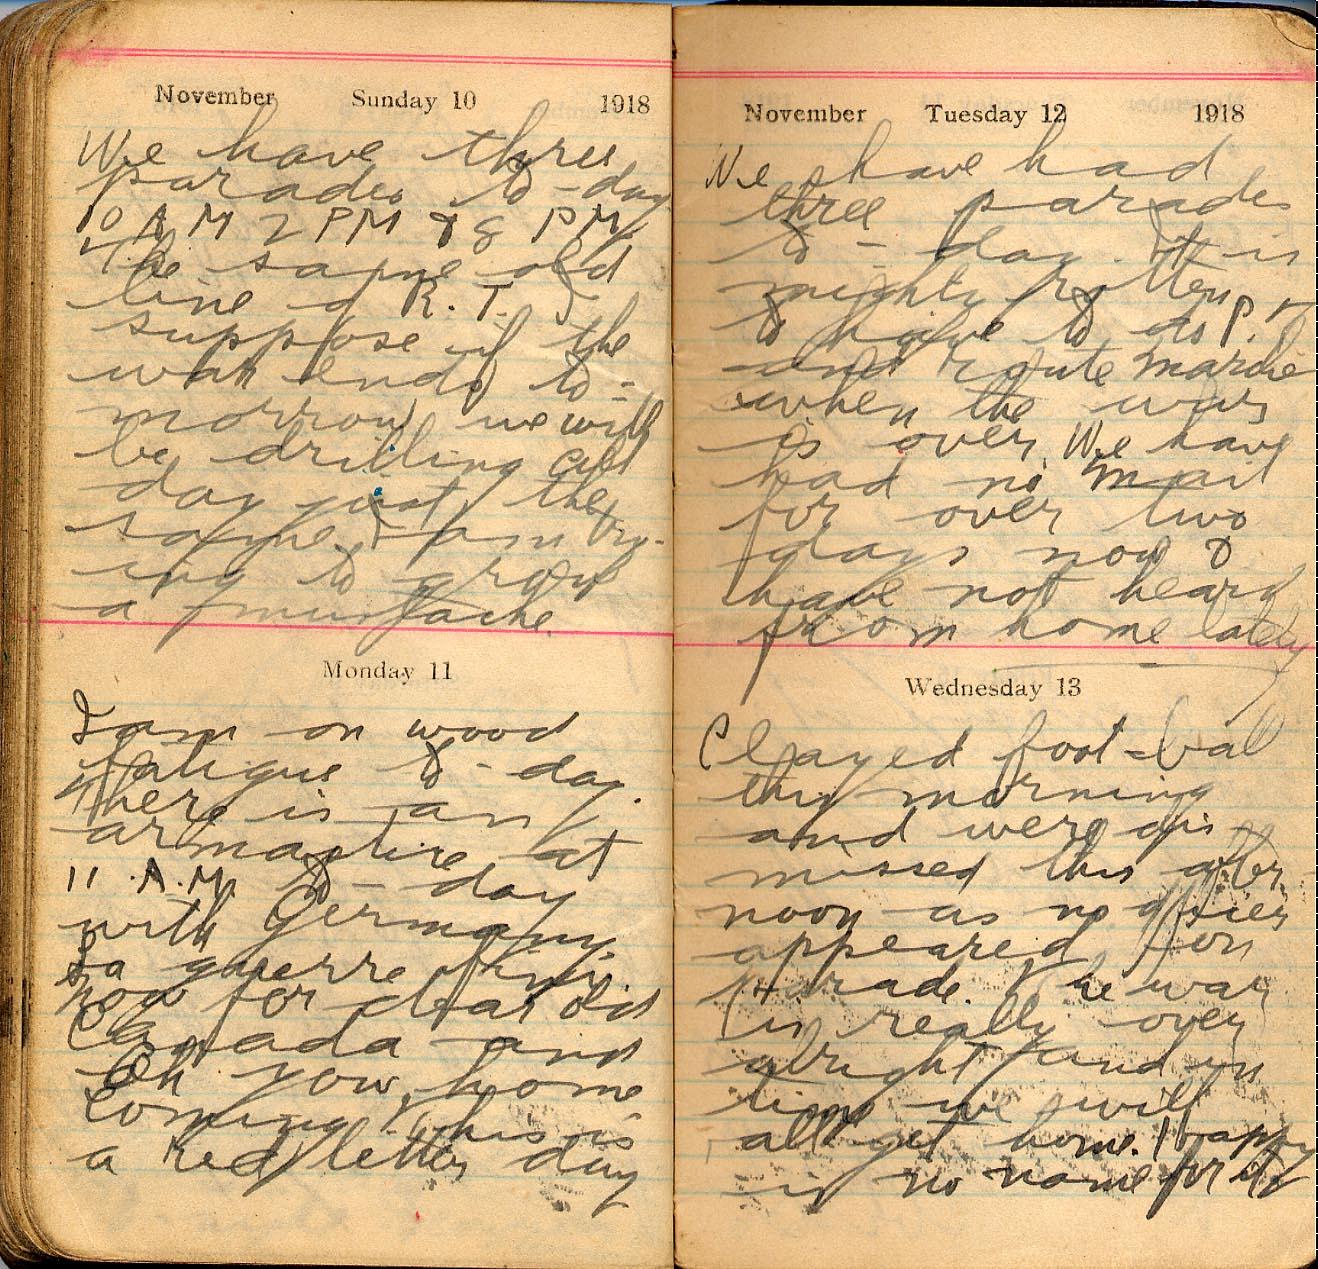 November Sunday 10 1918
We have three
parades to-day
10 A M 2 PM & 8 PM
the same old
line of R. T. I
suppose if the
war ends to-
morrow we will
be drilling all
day just the
same. I am try-
ing to grow
a mustache.
Monday 11
I am on wood
fatigue to-day.
There is an
armastice at
11 A.M. to-day
with Germany.
La guerre fini.
now for dear old
Canada and
Oh you home
coming. This is
a red letter day
November Tuesday 12 1918
We have had
three parades
to-day. It is
mighty rotten
to have to do P. T
and route marche
when the war
is over. We have
had no mail
for over two
days now &
have not heard
from home lately
Wednesday 13
Played foot-ball
this morning
and were dis
missed this after
noon as no officer
appeared on
parade. The war
is really over
alright and in
time we will
all get home. Happy
is no name for it